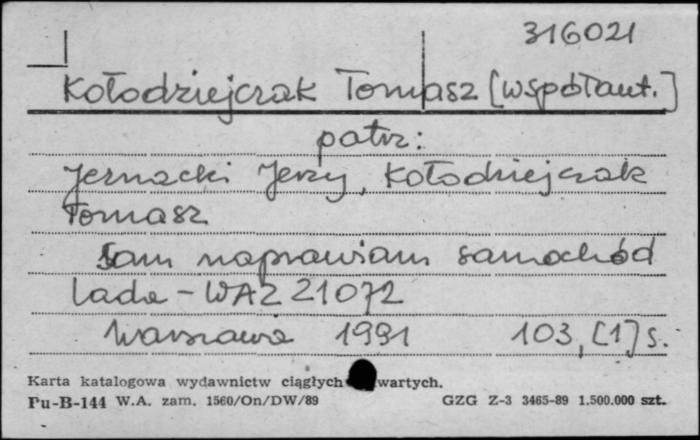 316021
Kołodziejczak Tomasz [współaut.]
patrz:
Jernacki Jerzy, Kołodziejczak
Tomasz
Sam naprawiam samochód
Lada - WAZ 21072
Warszawa 1991 103, [1] s.
Karta katalogowa wydawnictw ciągłych wartych.
Pu-B-144 W.A. zam. 1560/On/DW/89 GZG Z-3 3465-89 1.500.000 szt.